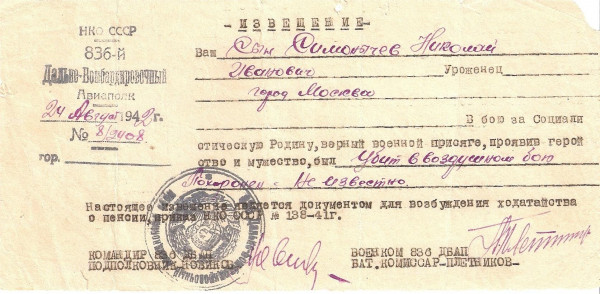 НКО СССР
836-й
Дально-Бомбардировочный
Авиополк
24 Август 1942г.
№ 8/3408
гор.
-ИЗВЕЩЕНИЕ-
Ваш Сын Симонычев Николай
Иванович Уроженец
город Москва
В бою за Социали
стическую Родину, верный военной присяге, проявив герой
ство и мужество, был Убит в воздушном бою
Похоронен - Не известно.
Настоящее извещение является документом для возбуждения ходатайства
о пенсии, приказ НКО СССР № 138-41г.
КОМАНДИР 836 ДБАП
ПОДПОЛКОВНИК НОВИКОВ-
ВОЕНКОМ 836 ДБАП
БАТ.КОМИССАР-ПЛЕТНИКОВ-